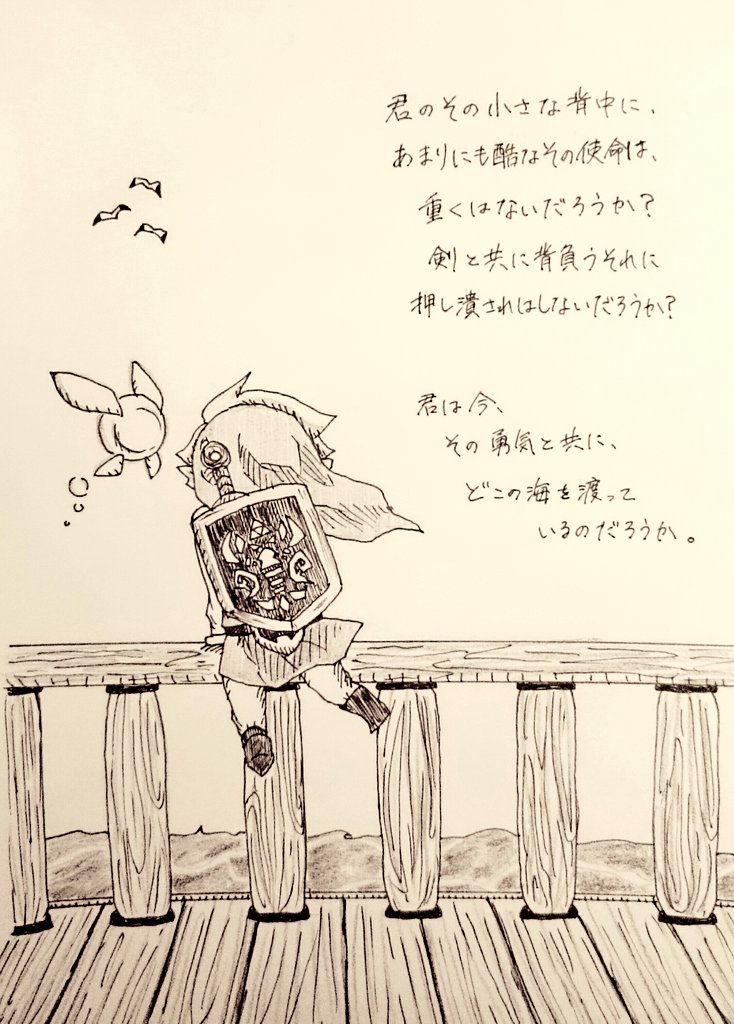 君のその小さな背中に、
あまりにも酷なその使命は、
重くはないだろうか?
剣と共に背負うそれに
押し潰されはしないだろうか?
君は今、
その勇気と共に、
どこの海を渡って
いるのだろうか。